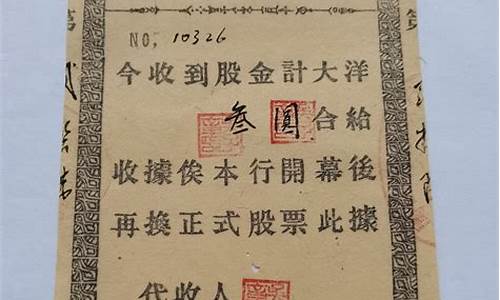 第
NO, 10326
今收到股金計大洋
叁圓合給
收據俟本行開幕後
再換正式股票此據
代收人